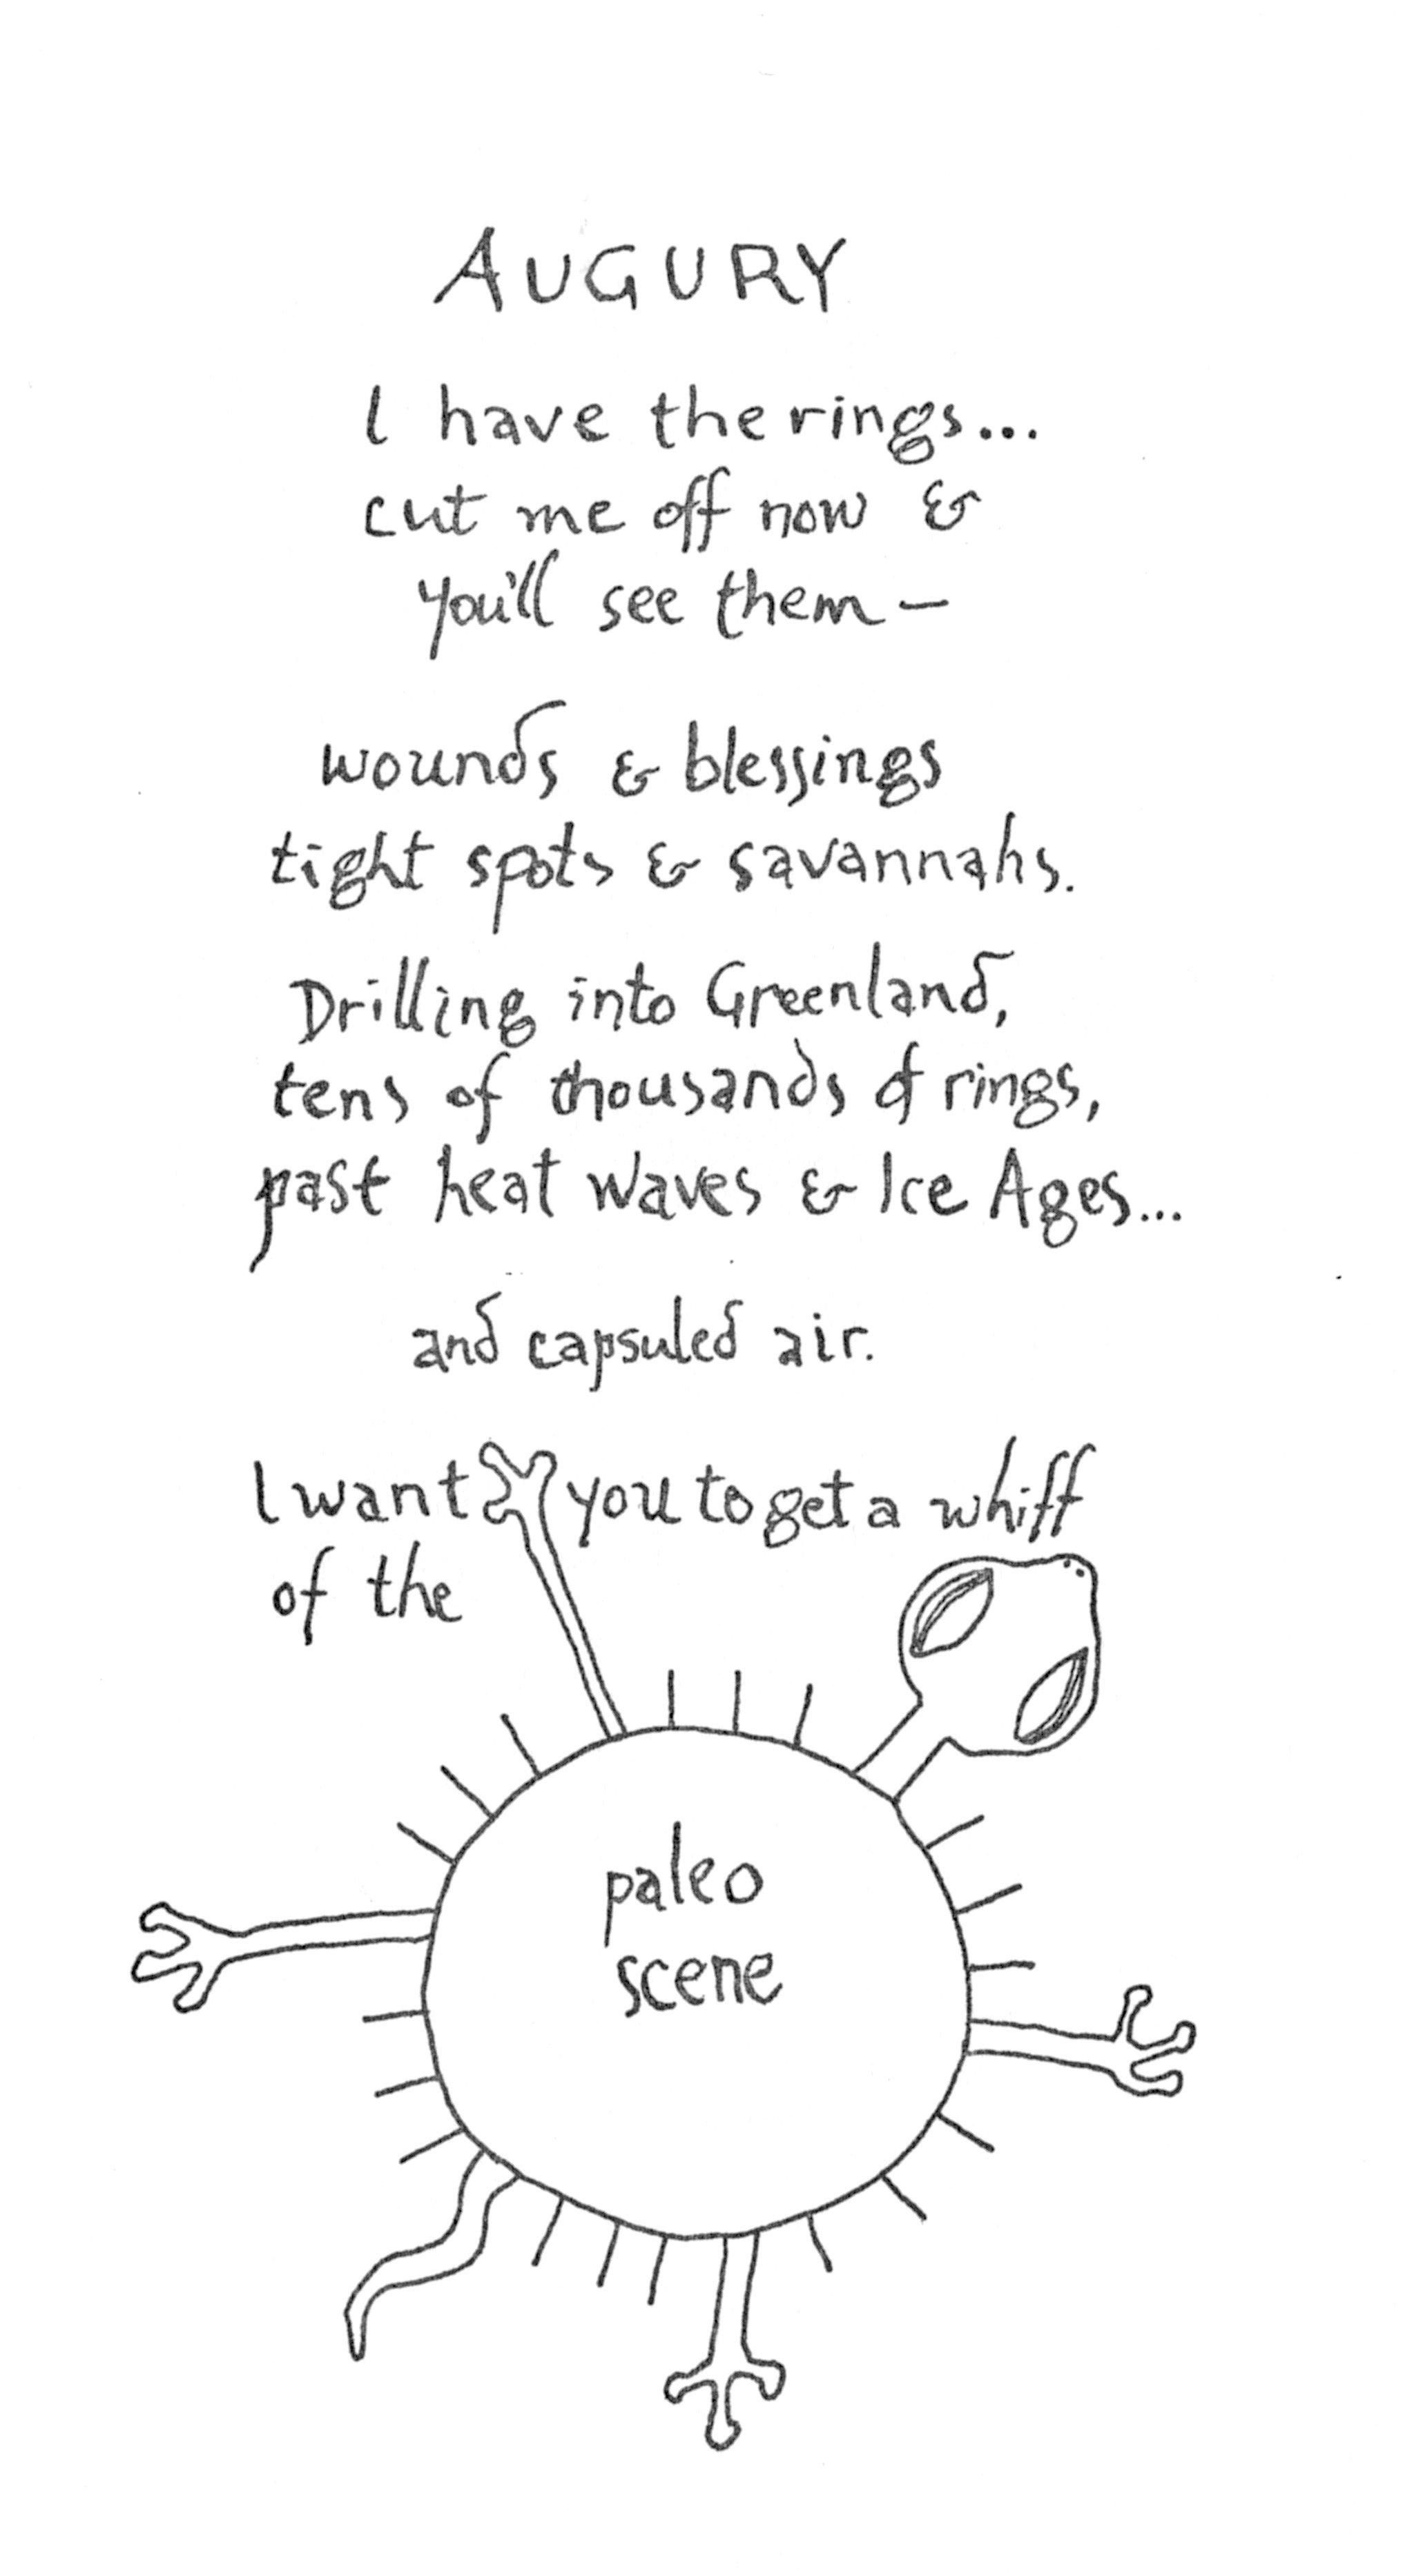 AUGURY
I have the rings...
cut me off now &
you'll see them —
wounds & blessings
tight spots & savannahs.
Drilling into Greenland,
tens of thousands of rings,
past heat waves & Ice Ages...
and capsuled air.
I want you to get a whiff
of the
paleo
scene